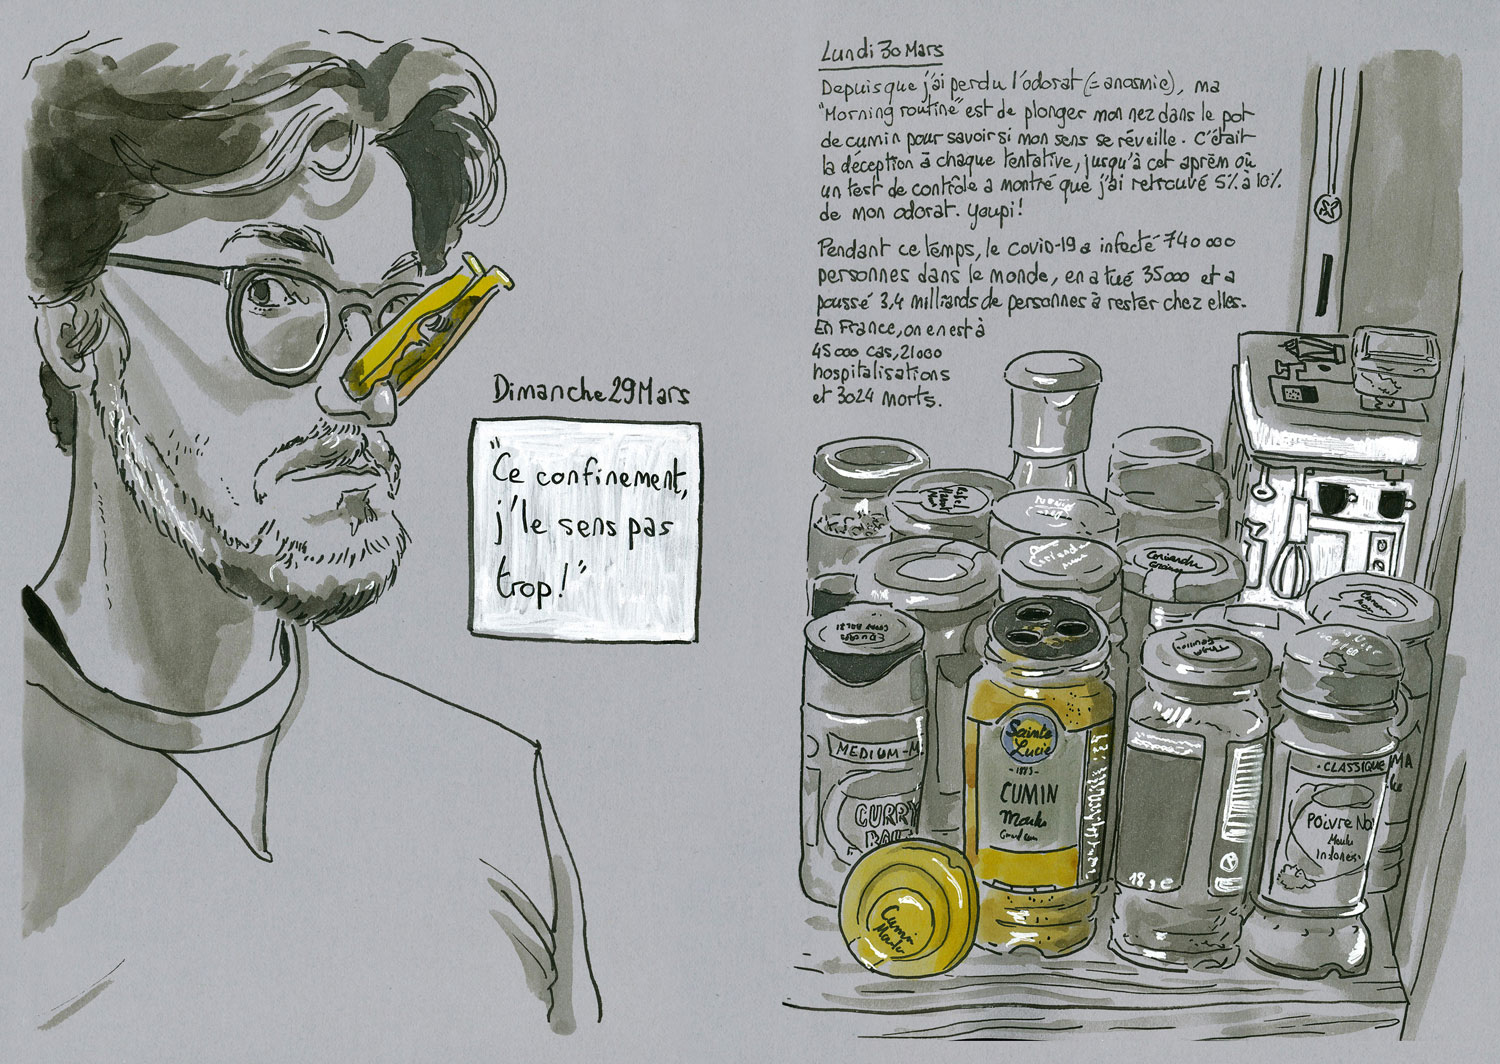 Dimanche 29 Mars
"Ce confinement,
j'le sens pas
trop!"
Lundi 30 Mars
Depuis que j'ai perdu l'odorat (= anosmie), ma
"Morning routine" est de plonger mon nez dans le pot
de cumin pour savoir si mon sens se réveille. C'était
la déception à chaque tentative, jusqu'à cet aprèm où
un test de contrôle a montré que j'ai retrouvé 5% à 10%
de mon odorat. Youpi!
Pendant ce temps, le COVID-19 a infecté 740 000
personnes dans le monde, en a tué 35000 et a
poussé 3,4 milliards de personnes à rester chez elles.
En France, on en est à
45000 cas, 21000
hospitalisations
et 3024 morts.
Coriandre
Coriandre
graines
MEDIUM-M
CURRY
Sainte
Lucie
-1883-
CUMIN
Moulu
Cumin
Moulu
18g e
.CLASSIQUE
MA
Poivre No
Moulu
Indonés